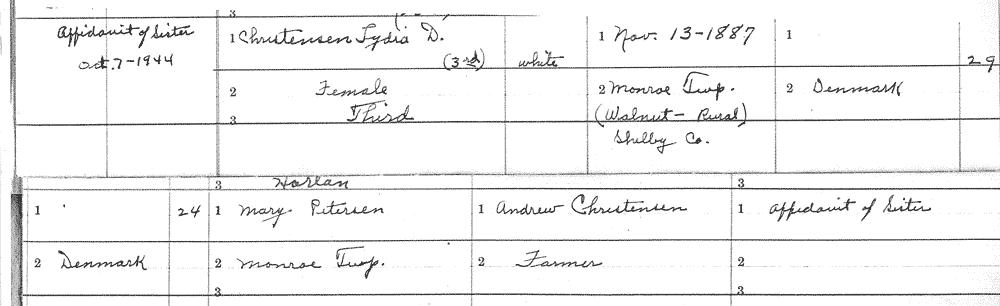 3
Affidavit of Sister
Oct. 7-1944
1 Christensen Lydia D.
(3rd)
white
1 Nov. 13-1887
1
29
2 Female
2 Monroe Twp.
2 Denmark
3 Third
(Walnut- Rural)
Shelby Co.
3 Harlan
3
1
24
1 Mary Petersen
1 Andrew Christensen
1 Affidavit of Sister
2 Denmark
2 Monroe Twp.
2 Farmer
2
3
3